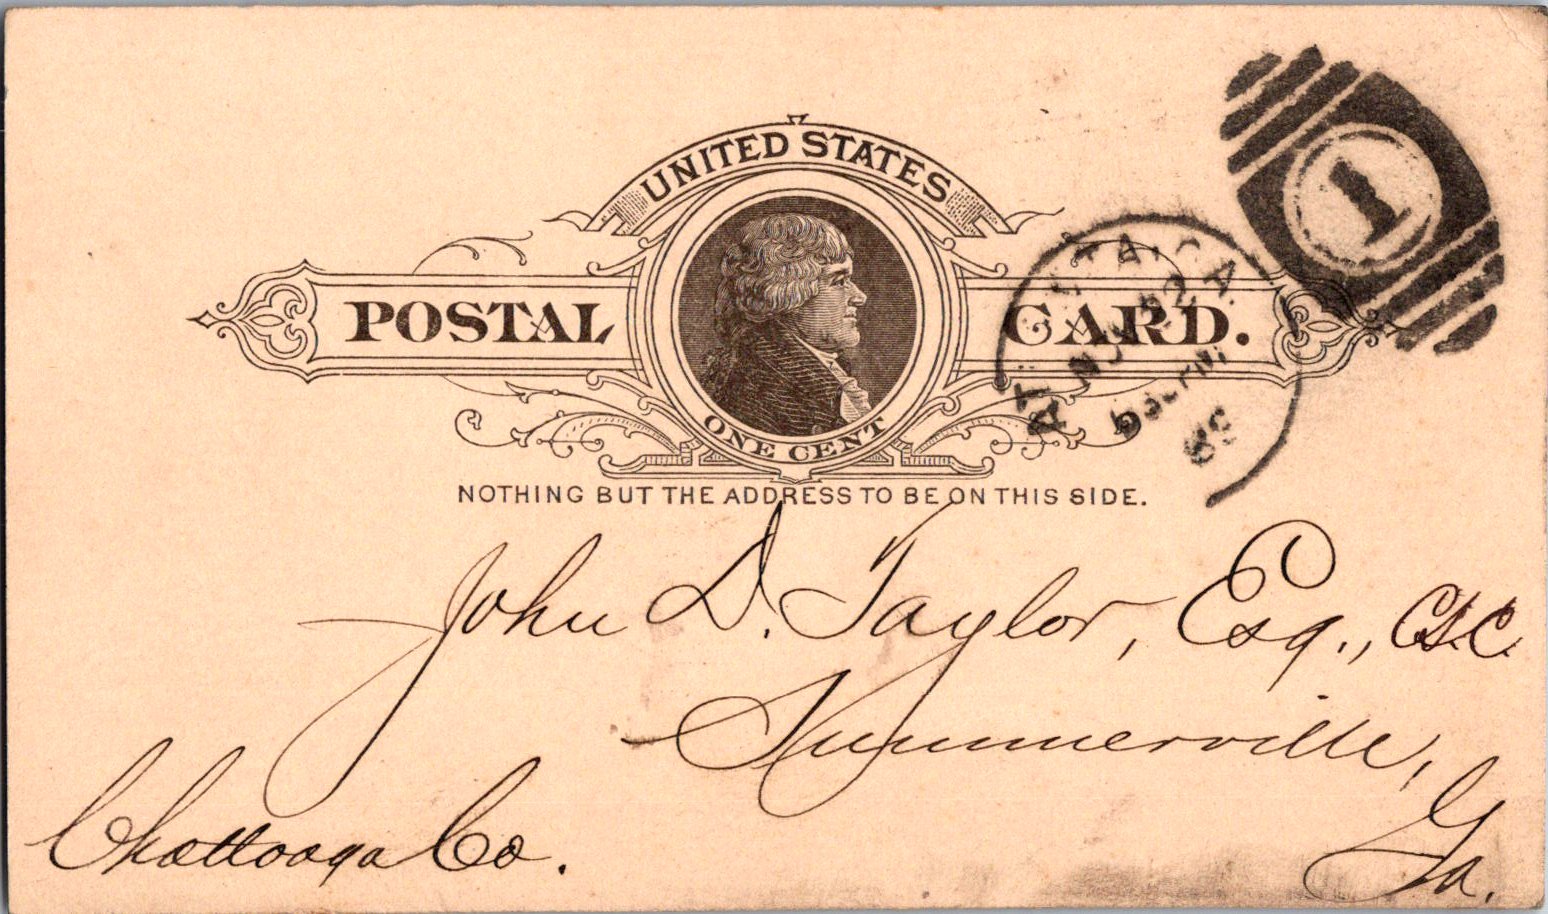 UNITED STATES
POSTAL CARD.
ONE CENT
NOTHING BUT THE ADDRESS TO BE ON THIS SIDE.
1
John D. Taylor, Esq., C.S.C.
Summerville,
Chattooga Co.
Ga.